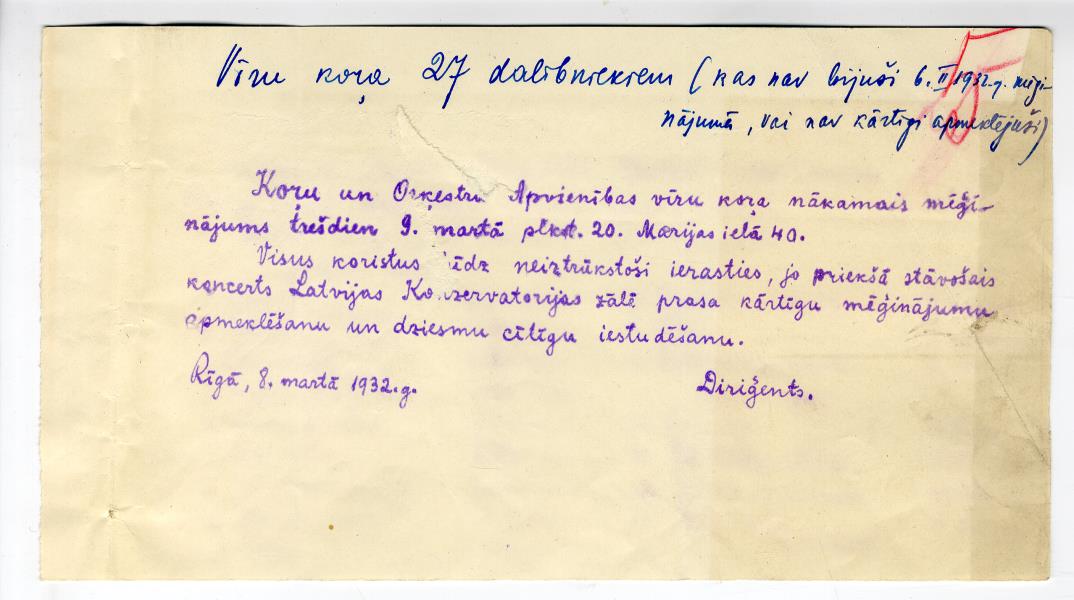 Vīru koŗa 27 dalībniekiem (kas nav bijuši 6. II 1932.g. mēģi-
nājumā, vai nav kārtīgi apmeklējuši)
Koŗu un Orķestru Apvienības vīru koŗa nākamais mēģi-
nājums trešdien 9. martā plkst. 20. Marijas ielā 40.
Visus koristus lūdz neiztrūkstoši ierasties, jo priekšā stāvošais
koncerts Latvijas Konzervatorijas zālē prasa kārtīgu mēģinājumu
apmeklēšanu un dziesmu cītīgu iestudēšanu.
Rīgā, 8. martā 1932.g.
Diriģents.